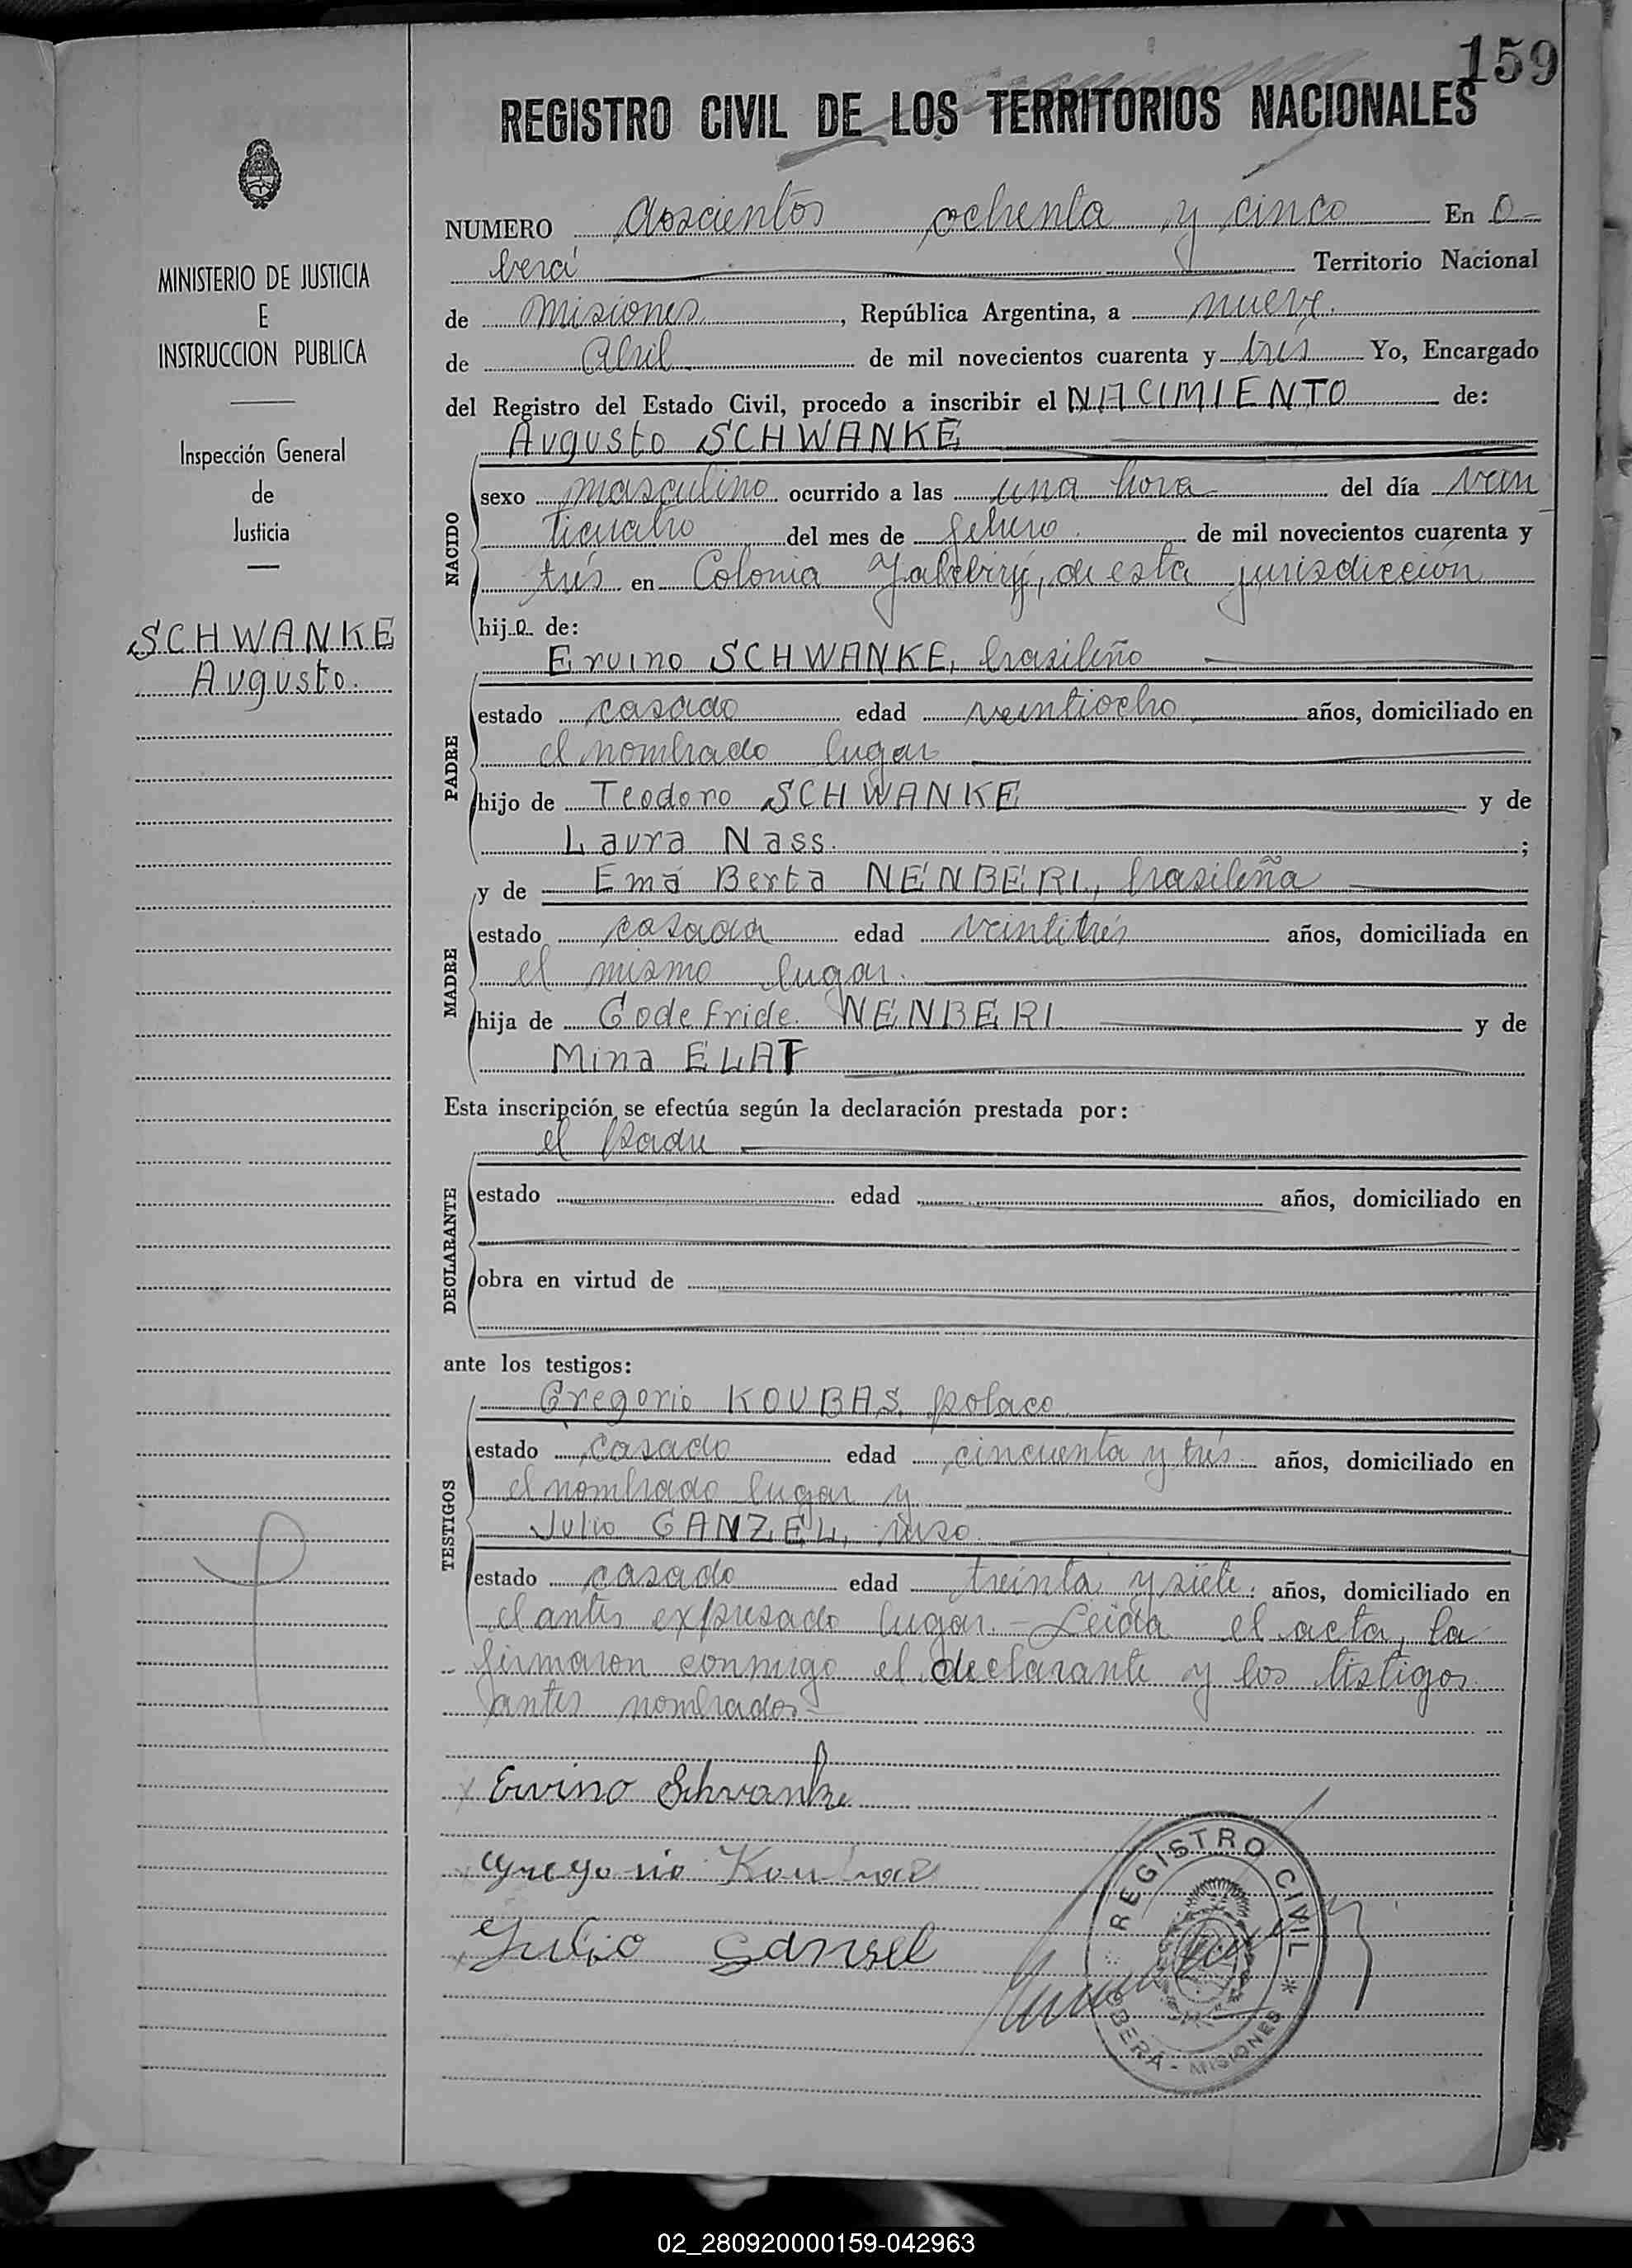 159
REGISTRO CIVIL DE LOS TERRITORIOS NACIONALES
MINISTERIO DE JUSTICIA
E
INSTRUCCION PUBLICA
Inspección General
de
Justicia
SCHWANKE
Augusto.
NUMERO doscientos ochenta y cinco En O-
berá Territorio Nacional
de Misiones, República Argentina, a nueve.
de Abril de mil novecientos cuarenta y trés Yo, Encargado
del Registro del Estado Civil, procedo a inscribir el NACIMIENTO de:
Augusto SCHWANKE
NACIDO
sexo masculino ocurrido a las una hora del día vein
ticuatro del mes de febrero de mil novecientos cuarenta y
trés en Colonia Yabebiry, de esta jurisdicción
hijo de:
Ervino SCHWANKE, brasileño
PADRE
estado casado edad veintiocho años, domiciliado en
el nombrado lugar
hijo de Teodoro SCHWANKE y de
Laura Nass. ;
y de Ema Berta NENBERI, brasileña
MADRE
estado casada edad veintitrés años, domiciliada en
el mismo lugar.
hija de Godefride. NENBERI y de
Mina ELAT
Esta inscripción se efectúa según la declaración prestada por:
el Padre
DECLARANTE
estado edad años, domiciliado en
obra en virtud de
ante los testigos:
Gregorio KOUBAS, polaco
TESTIGOS
estado casado edad cincuenta y trés años, domiciliado en
el nombrado lugar y
Julio GANZEL, ruso
estado casado edad treinta y siete. años, domiciliado en
el antes expresado lugar. - Leida el acta, la
firmaron conmigo el declarante y los testigos
antes nombrados-
Ervino Schwanke
Gregorio Koubas
Julio Gansel
REGISTRO CIVIL *
OBERÁ - MISIONES
02_280920000159-042963